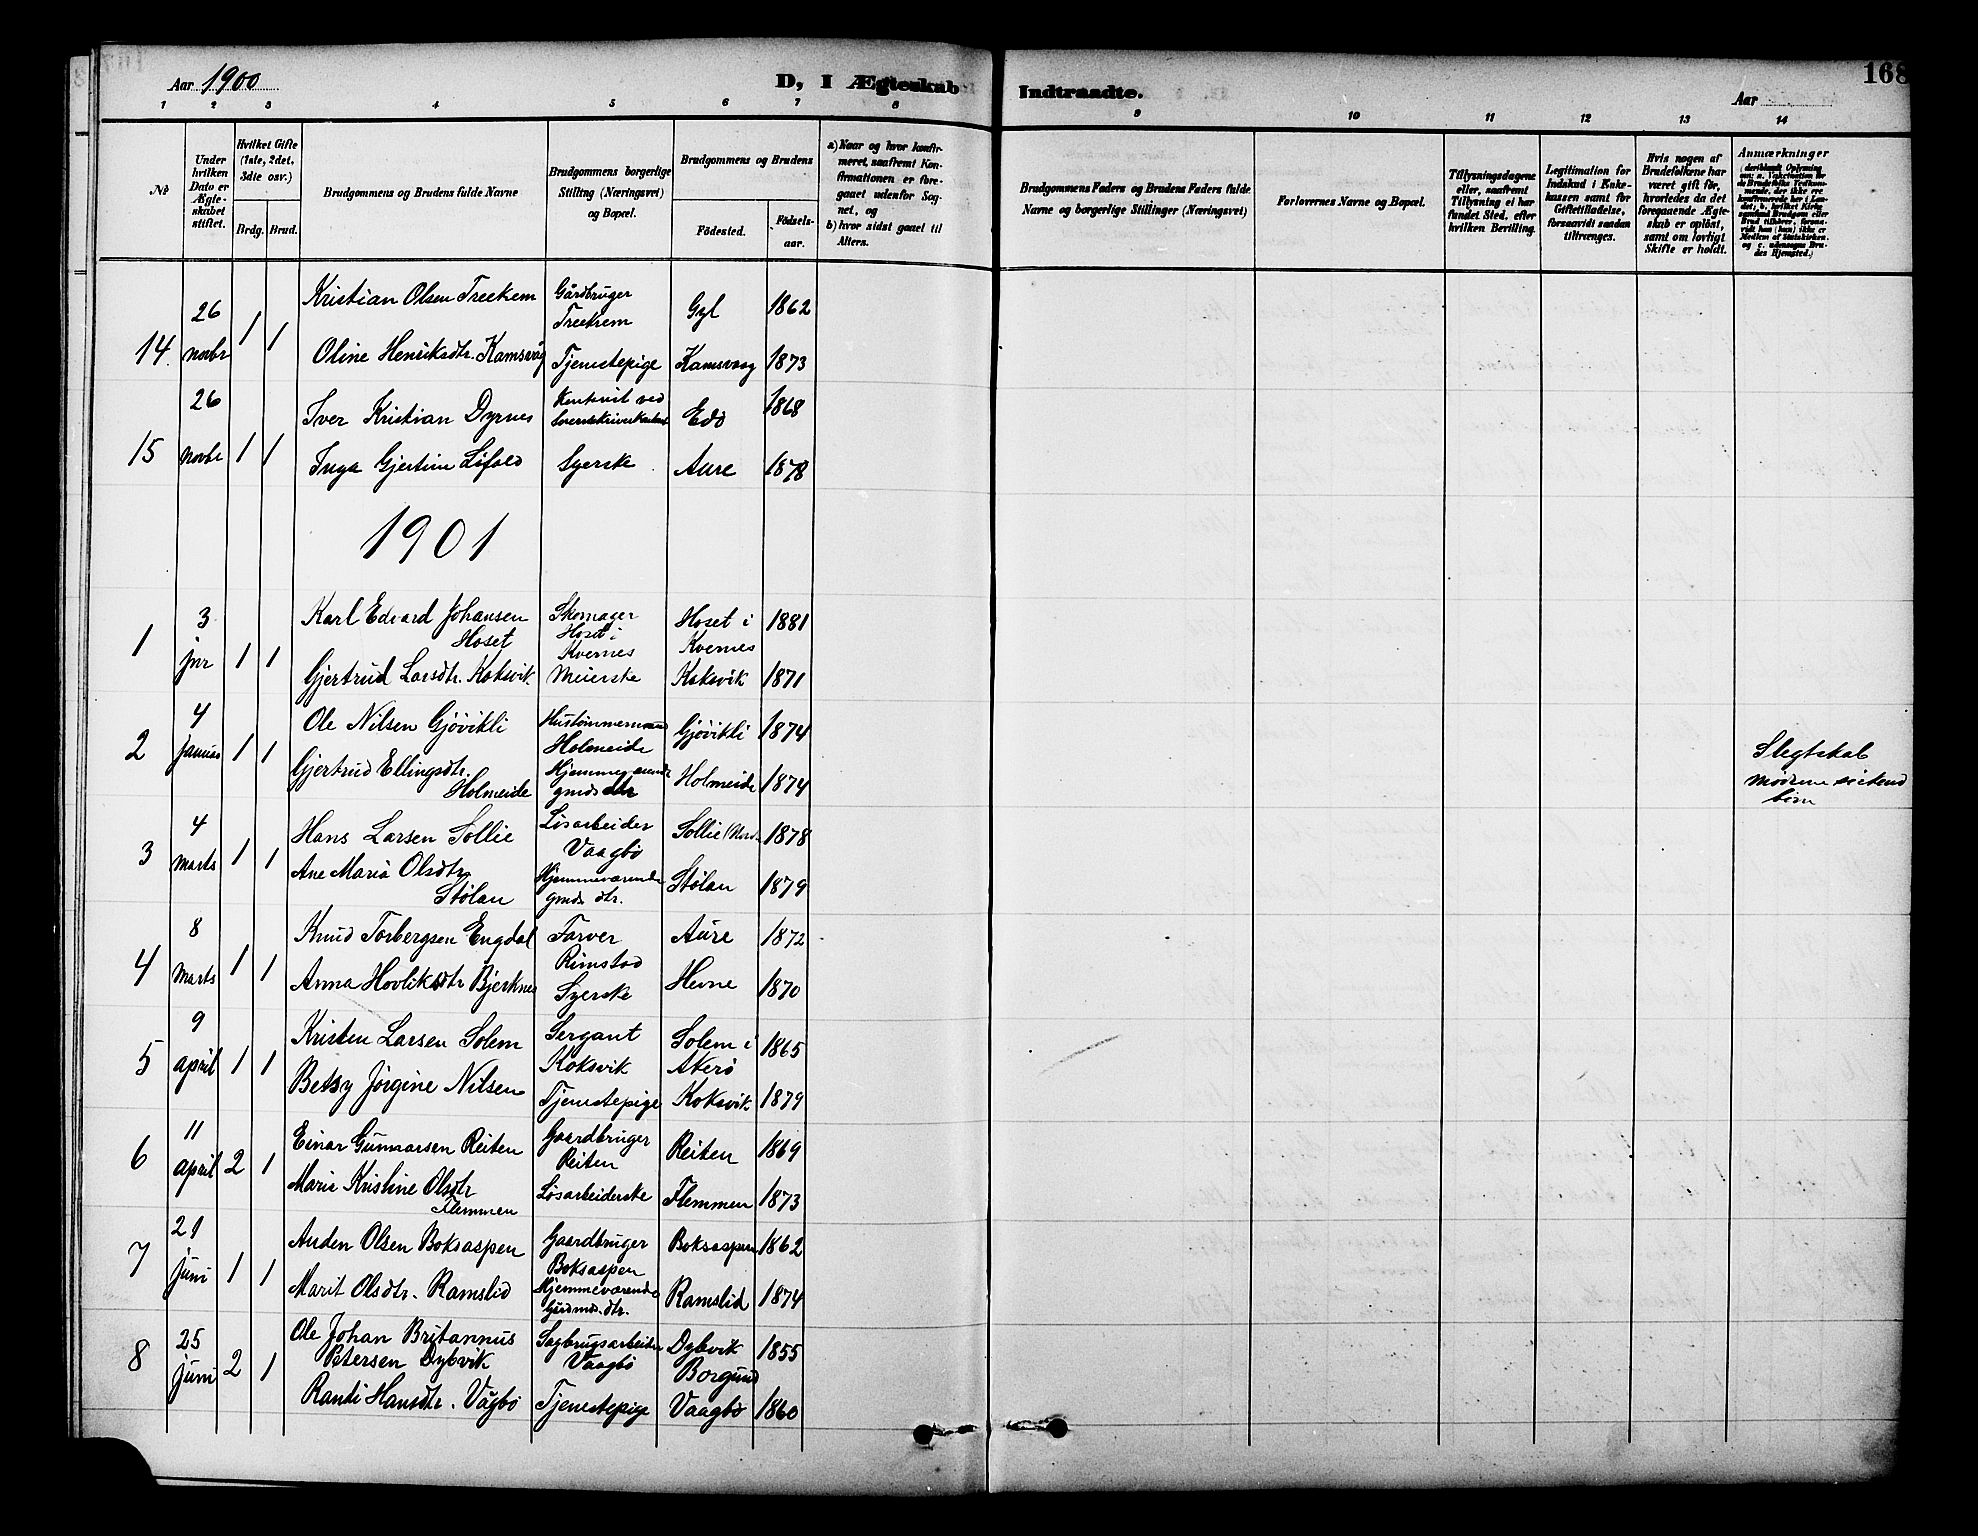 Aar 1900
D, I Ægteskab Indtraadte.
168
Aar
1 2 3 4 5 6 7 8 9 10 11 12 13 14
№
Under hvilken Dato er Ægteskabet stiftet.
Hvilket Gifte (1ste, 2det, 3die osv.)
Brdg. Brud.
Brudgommens og Brudens fulde Navne
Brudgommens borgerlige Stilling (Næringsvei) og Bopæl.
Brudgommens og Brudens
Födested.
Födsels-aar.
a) Naar og hvor konfirmeret, saafremt Konfirmationen er foregaaet udenfor Sognet, og
b) hvor sidst gaaet til Alters.
Brudgommens Faders og Brudens Faders fulde Navne og borgerlige Stillinger (Næringsvei)
Forlovernes Navne og Bopæl.
Tillysningsdagene eller, saafremt Tillysning ei har fundet Sted, efter hvilken Bevilling.
Legitimation for Indskud i Enkekassen samt for Giftetilladelse, forsaavidt saadan tiltrænges.
Hvis nogen af Brudefolkene har været gift för, hvorledes da det foregaaende Ægteskab er oplöst, samt om lovligt Skifte er holdt.
Anmærkninger
14 26 novbr 1 1
Kristian Olsen Treekrem Gårdbruger Treekrem Gyl 1862
Oline Henriksdtr. Kamsvåg Tjenestepige Kamsvaag 1873
15 26 novbr 1 1
Iver Kristian Dyrnes Edö 1868
Inga Gjertine Syerske Aure 1878
1901
1 3 jnr 1 1
Karl Edvard Johansen Hoset Skomager Hoset i Kvernes Hoset i Kvernes 1881
Gjertrud Larsdtr. Koksvik Meierske Koksvik 1871
2 4 januar 1 1
Ole Nilsen Gjövikli Hustömmermand Holmeide Gjövikli 1874
Gjertrud Ellingsdtr. Holmeide Hjemmeværende gmds dtr Holmeide 1874
Slegtskab
Mödrene
börn
3 4 marts 1 1
Hans Larsen Sollie Lösarbeider Vaagbö Sollie 1878
Ane Maria Olsdtr Stölan Hjemmeværende gmds dtr. Stölan 1879
4 8 marts 1 1
Knud Torbergsen Engdal Farver Rimstad Aure 1872
Anna Hovliksdtr Bjerknes Syerske Hevne 1870
5 9 april 1 1
Kristen Larsen Solem Sergant Koksvik Solem i Akerö 1865
Betzy Jörgine Nilsen Tjenestepige Koksvik 1879
6 11 april 2 1
Einar Gunnarsen Reiten Gaardbruger Reiten Reiten 1869
Marie Kristine Olsdtr Flemmen Lösarbeiderske Flemmen 1873
7 21 juni 1 1
Anden Olsen Boksaspen Gaardbruger Boksaspen Boksaspen 1862
Marit Olsdtr. Ramslid Hjemmeværende Gårdmds. dtr. Ramslid 1874
8 25 juni 2 1
Ole Johan Britannus Petersen Dybvik Sagbrugsarbeider Vaagbö Dybvik Borgund 1855
Randi Hansdtr. Vågbö Tjenestepige Vaagbö 1860